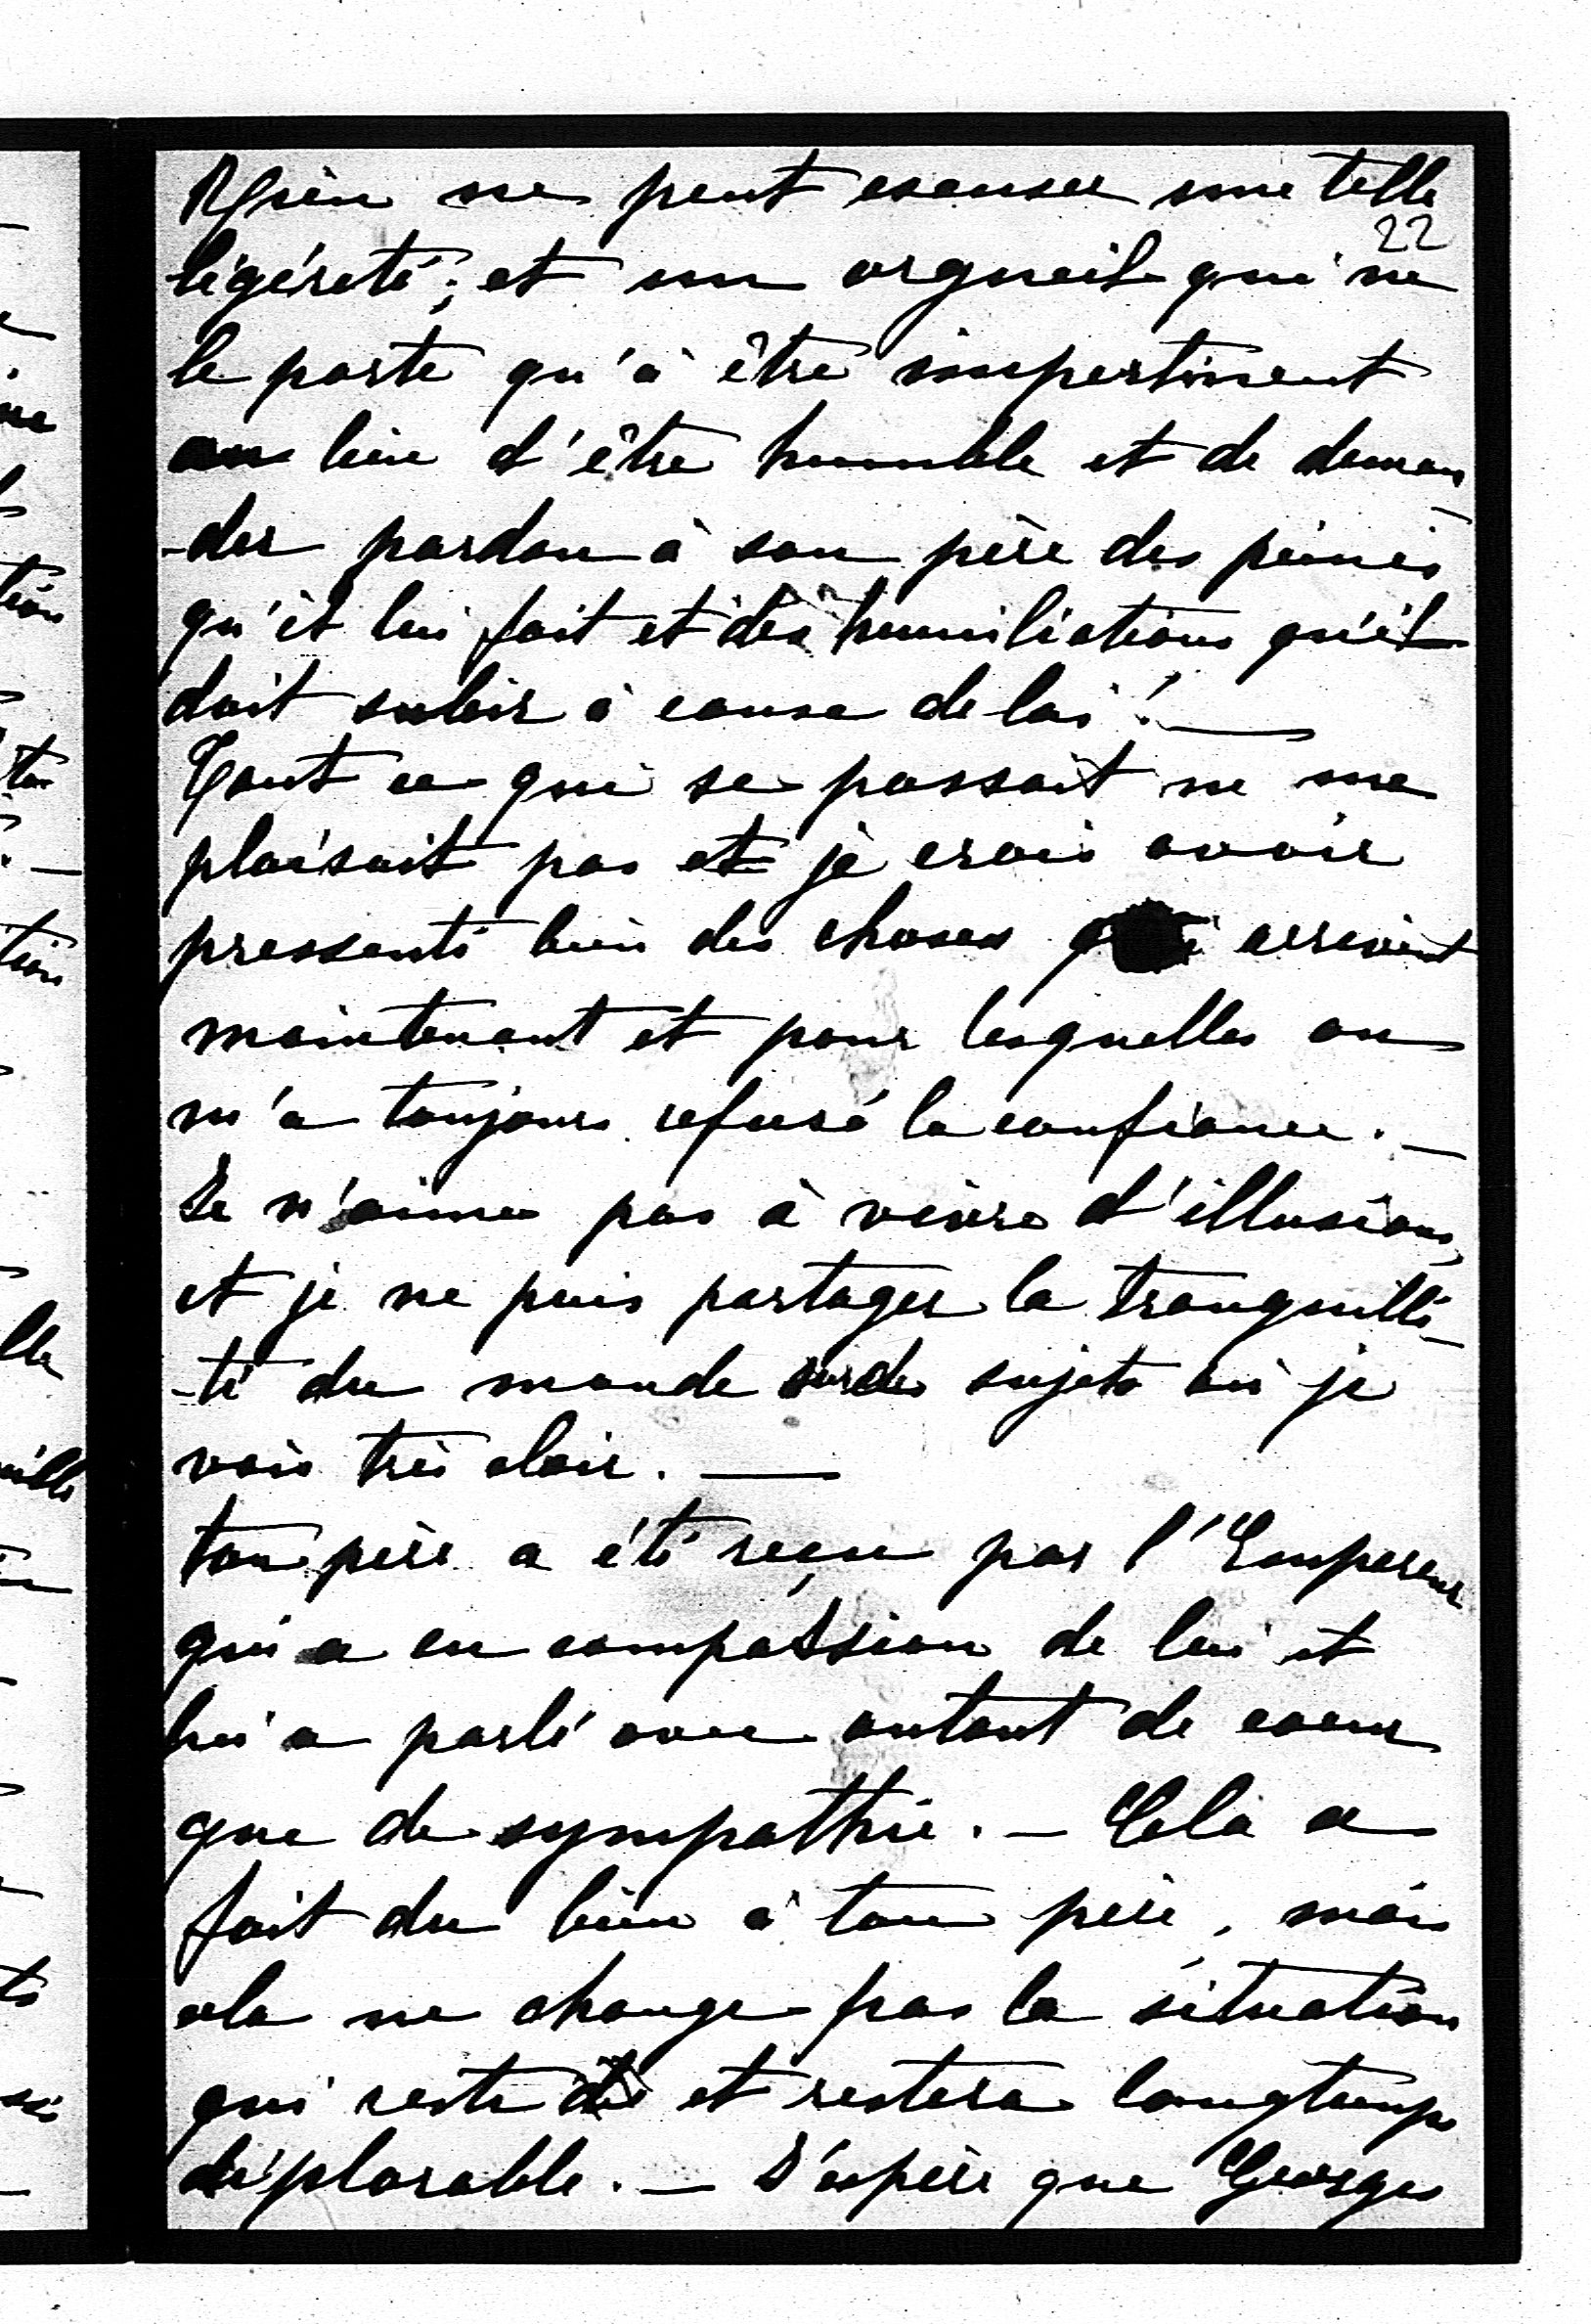 Rien ne peut excuser une telle
22
légéreté; et un orgueil qui ne
le porte qu'à être impertinent
au lieu d'être humble et de deman
-der pardon à son père des peines
qu'il lui fait et des humiliations qu'il
doit subir à cause de lui! —
Tout ce qui se passait ne me
plaisait pas et je crois avoir
pressenti bien des choses qui arrivent
maintenant et pour lesquelles on
m'a toujours refusé la confiance. —
Je n'aime pas à vivre d'illusions,
et je ne puis partager la tranquilli-
-té du monde sur des sujets où je
vois très clair. —
ton père a été reçu par l'Empereur
qui a eu compassion de lui et
lui a parlé avec autant de coeur
que de sympathie. — Cela a
fait du bien à ton père, mais
cela ne change pas la situation
qui reste et restera longtemps
déplorable. — J'espère que Georges